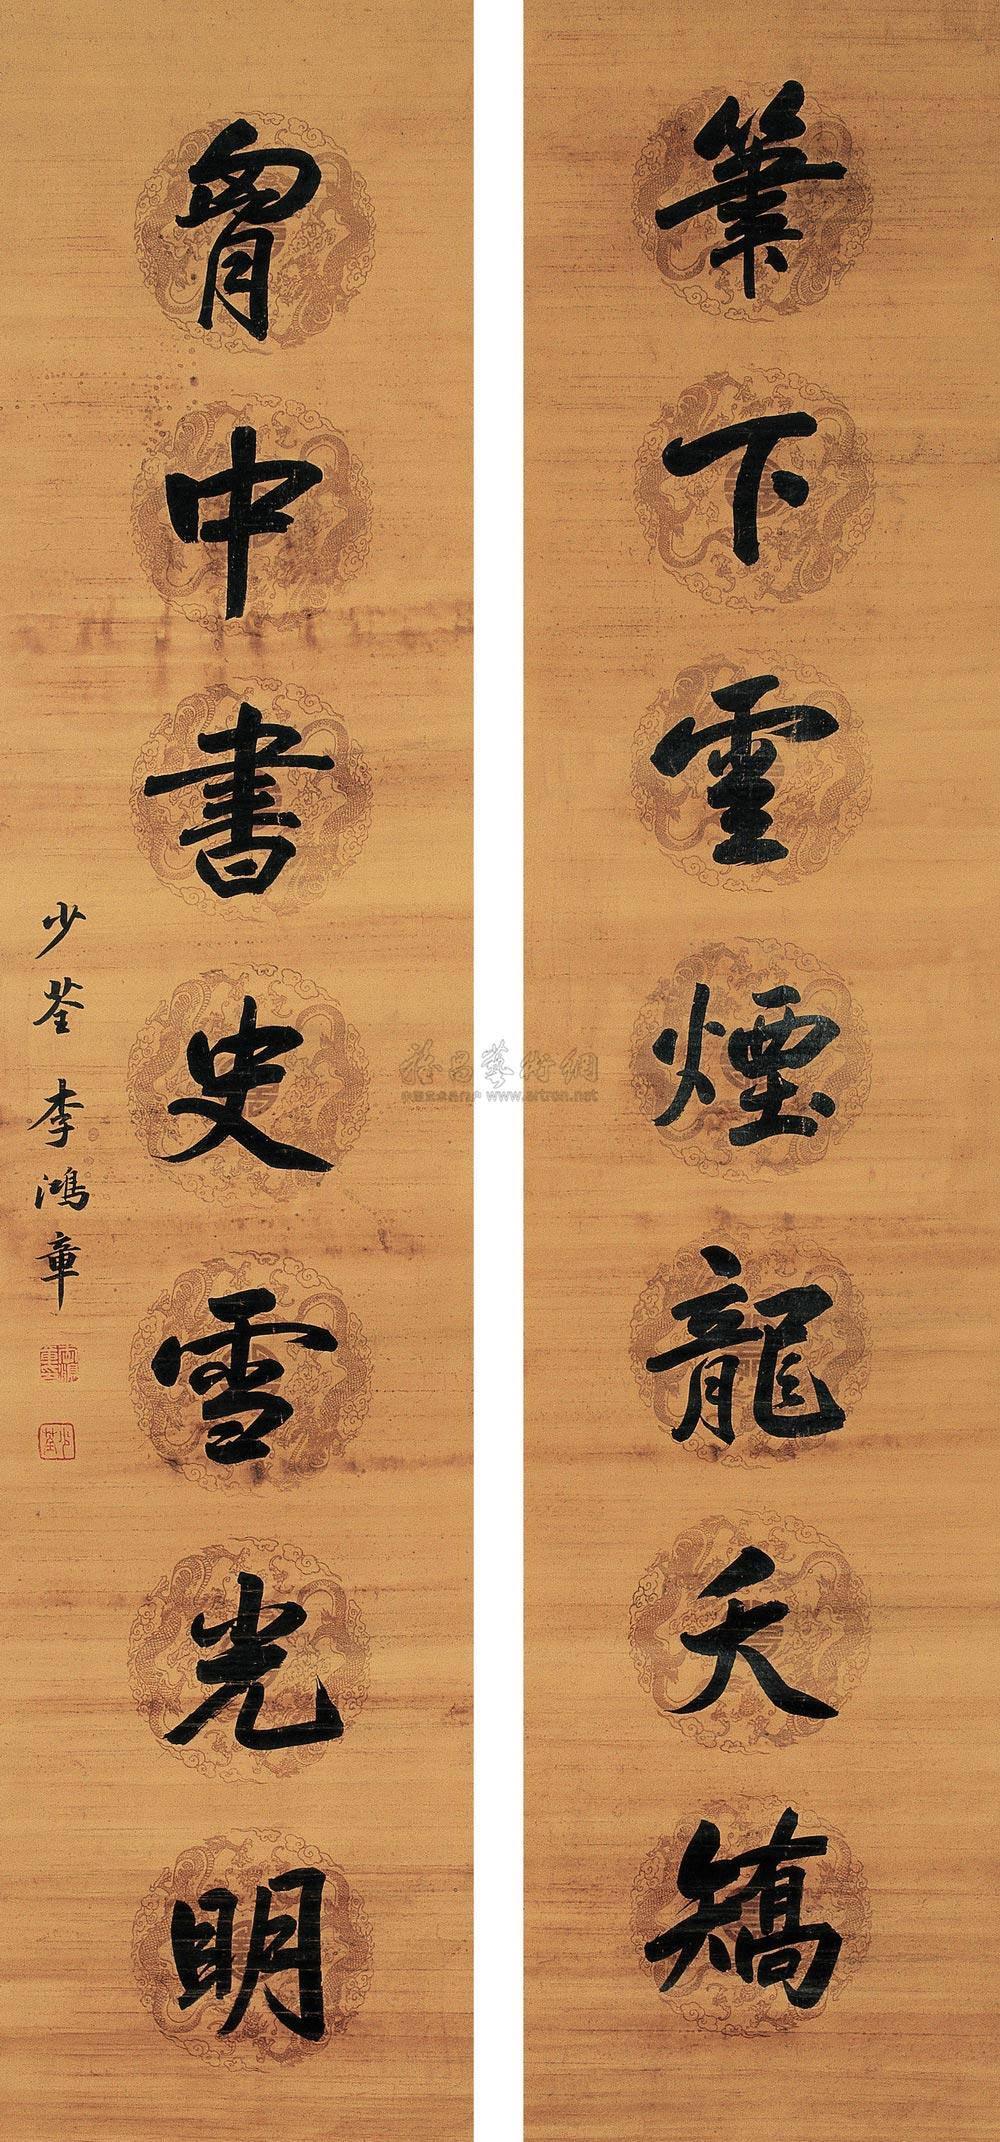 筆下雲煙龍夭矯
胷中書史雪光明
少荃 李鴻章
少荃
雅昌藝術網
www.artron.net